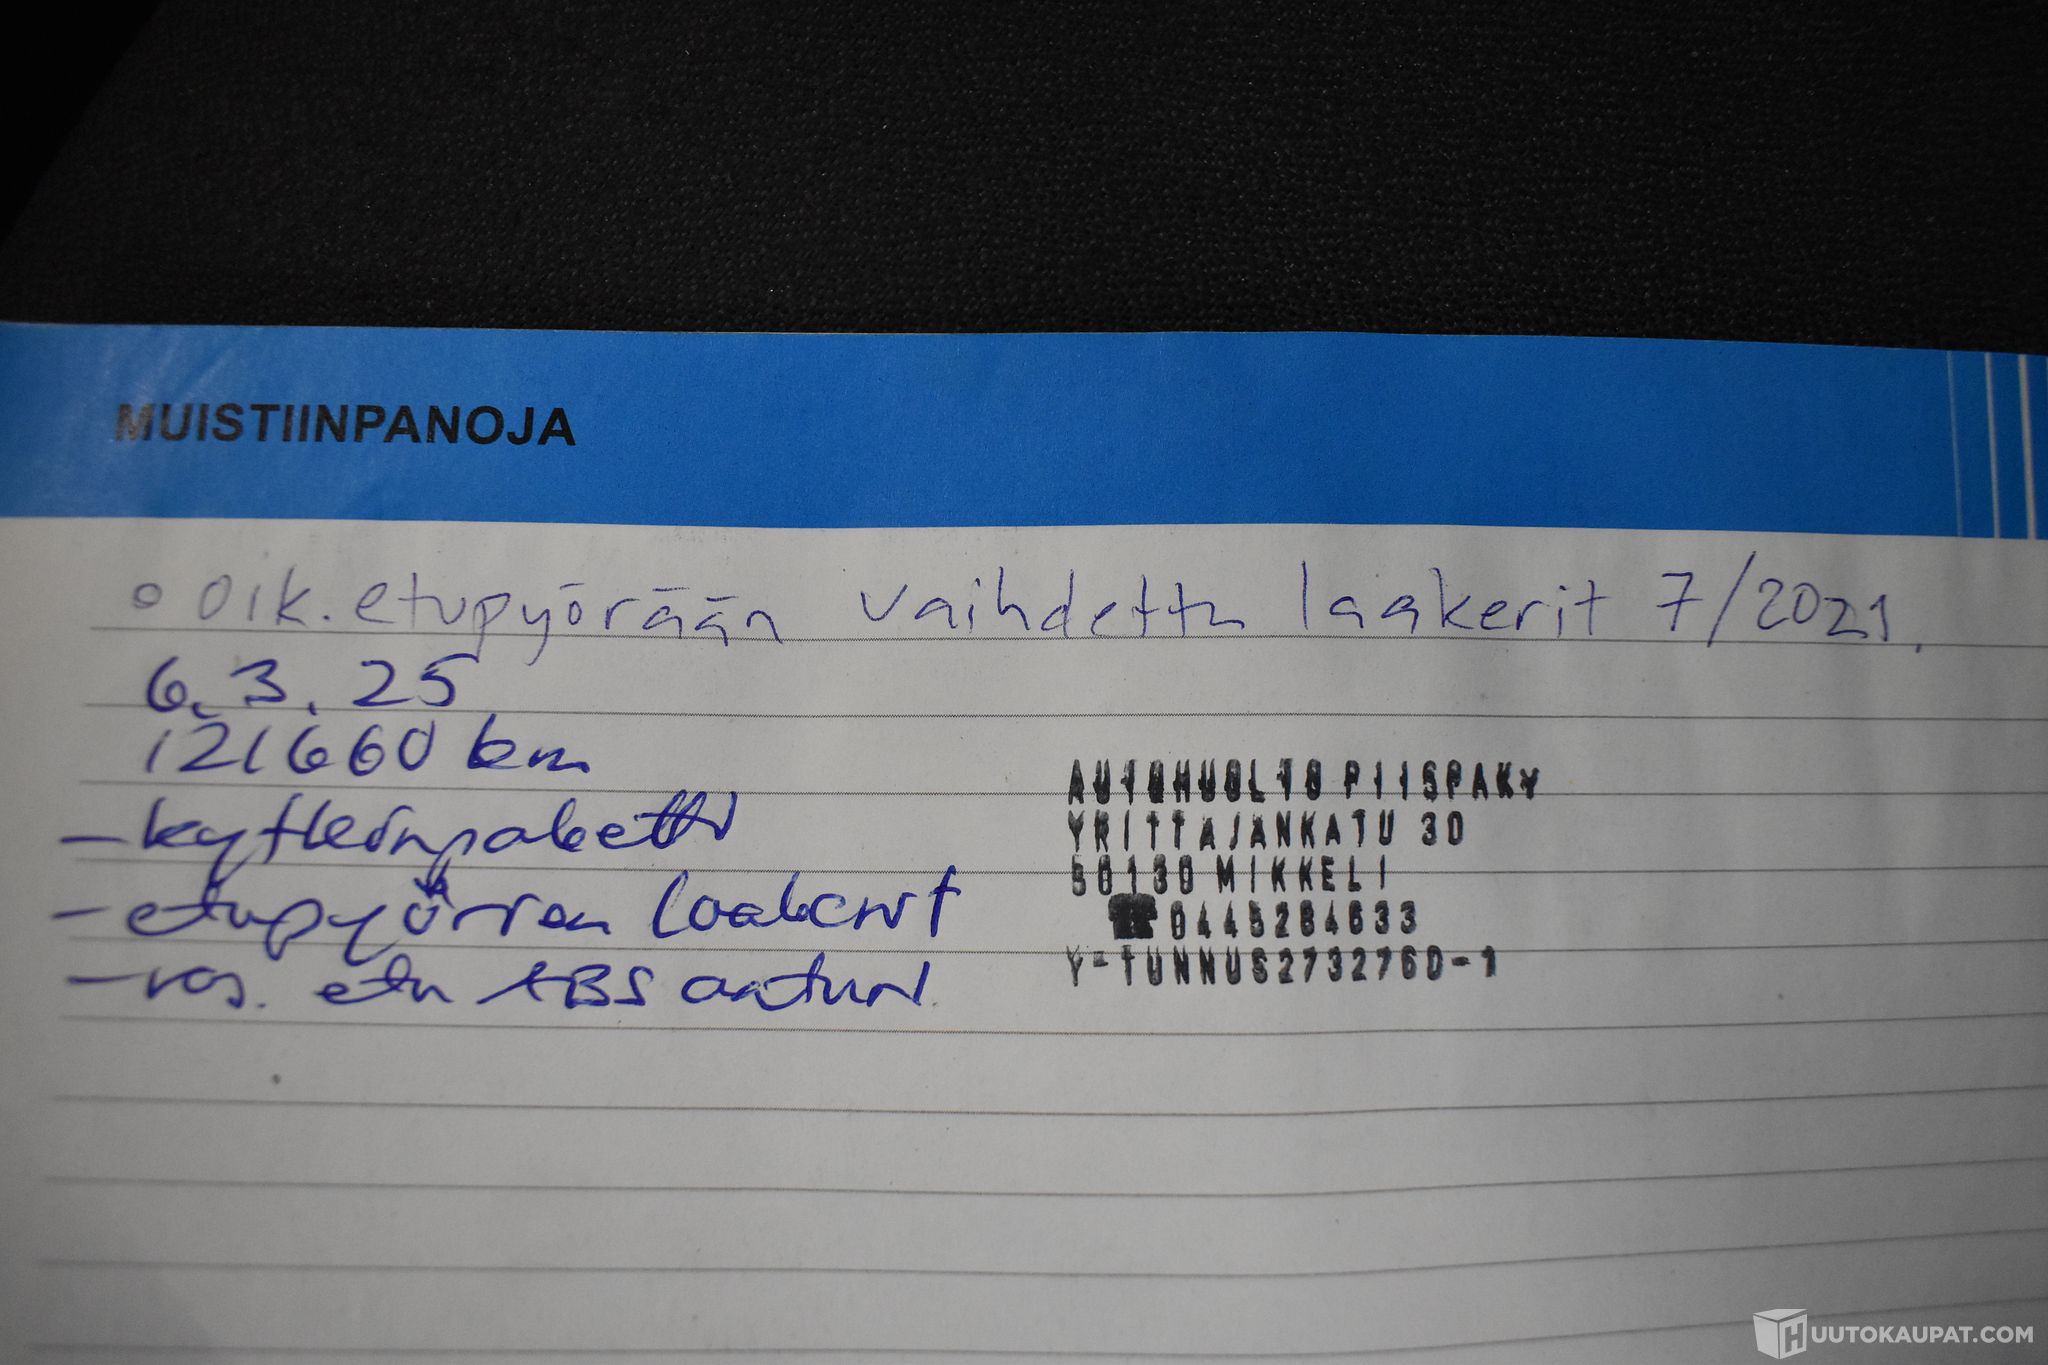 MUISTIINPANOJA
o oik. etupyörään vaihdettu laakerit 7/2021.
6.3.25
121660 km
- kytkinpaketti
- etupyörien laakerit
- vas. etu ABS anturi
AUTOHUOLTO PIISPA KY
YRITTAJANKATU 30
50130 MIKKELI
☎ 0445284633
Y-TUNNUS2732760-1
HUUTOKAUPAT.COM